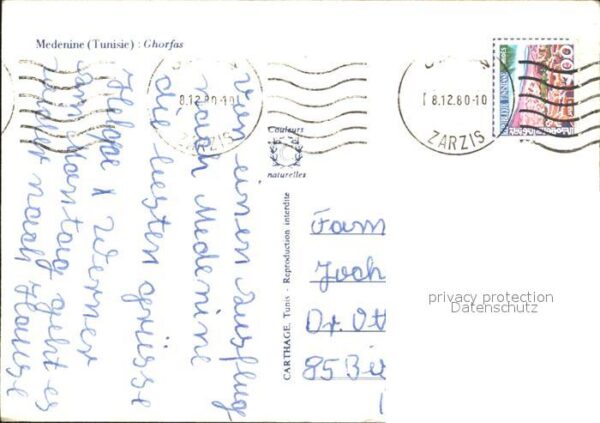 Medenine (Tunisie) : Ghorfas
von einen Ausflug
nach Medenine
die besten Grüsse
Helga x Werner
am Montag geht es
wieder nach Hause
8.12.80-10
ZARZIS
8.12.80-10
ZARZIS
Couleurs
naturelles
CARTHAGE, Tunis - Reproduction interdite
Fam
Joch
Dr. Ott
85 Bei
privacy protection
Datenschutz